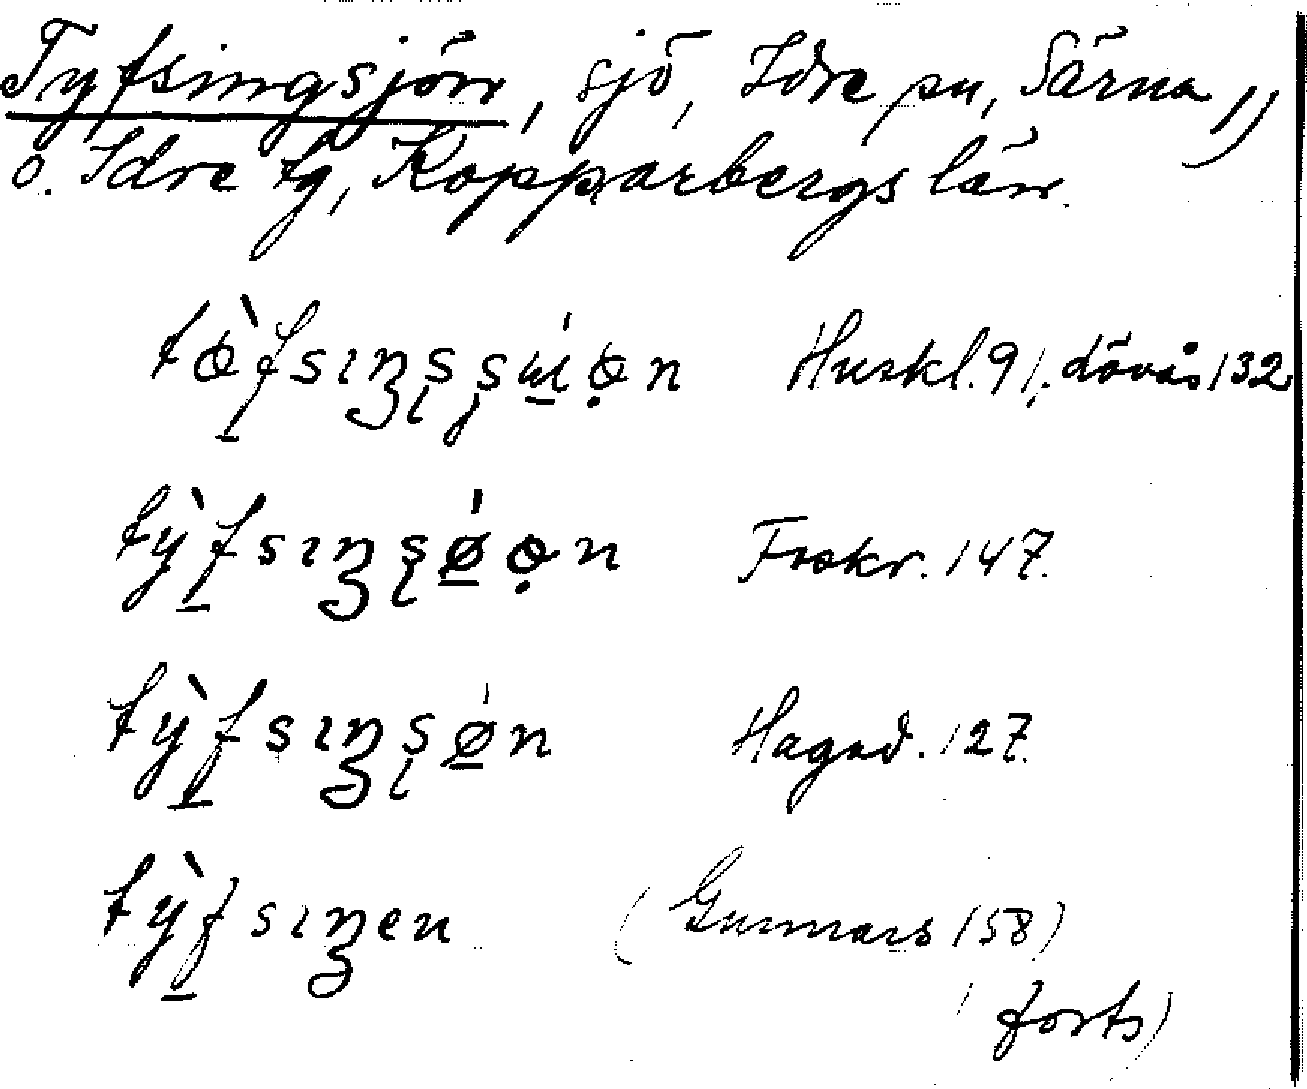 Tyfsingsjön, sjö, Idre sn, Särna 1)
o. Idre tg, Kopparbergs län.
Huskl. 91, dövås 132
tỳfsıŋsǿ̱ọn Foskr. 147.
tỳfsıŋsǿ̱n Hagsd. 127.
tỳfsıŋen (Gunnars 158)
forts)